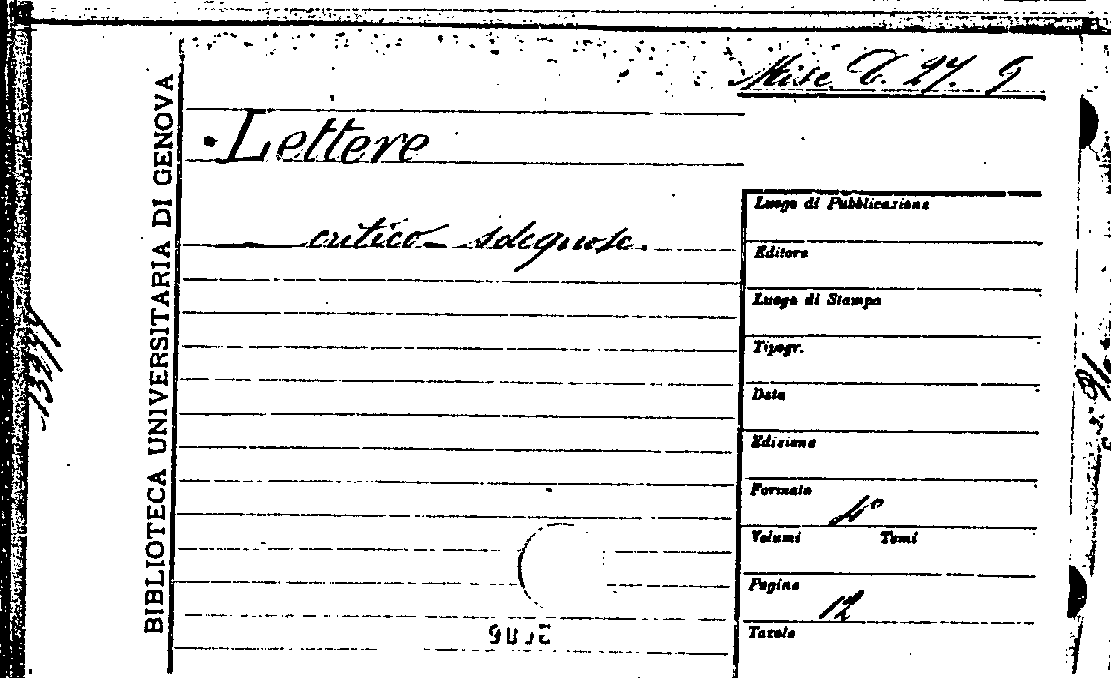 Misc. C. 27. 5
BIBLIOTECA UNIVERSITARIA DI GENOVA
Lettere
critico- sdegnose.
Luogo di Pubblicazione
Editore
Luogo di Stampa
Tipogr.
Data
Edizione
Formato 4°
Volumi Tomi
Pagine 12
Tavole